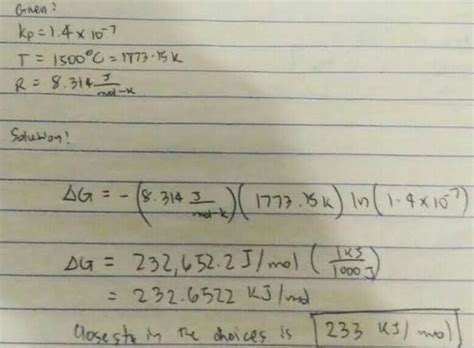 Given:
kp = 1.4 x 10⁻⁷
T = 1500°C = 1773.15 K
R = 8.314 J/mol-K
Solution:
ΔG = -(8.314 J/mol-K)(1773.15 K) ln (1.4 x 10⁻⁷)
ΔG = 232,652.2 J/mol (1 KJ/1000 J)
= 232.6522 KJ/mol
Closests in the choices is 233 KJ/mol